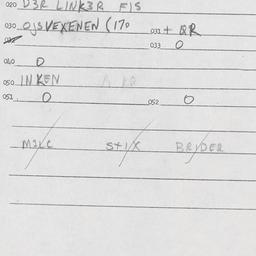 020 D3R LINK3R FIS
030 OJSVEXENEN (170 031 + QR
033 O
040 O
050 INKEN
051 O 052 O
M3LC STIX BRYDER